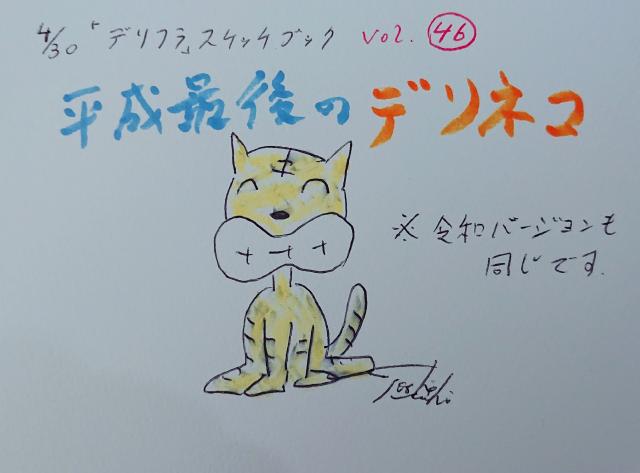 4/30「デリフラ」スケッチブック vol. 46
平成最後のデリネコ
※令和バージョンも
同じです.